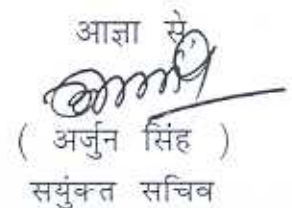 आज्ञा से,
( अर्जुन सिंह )
सयुंक्त सचिव